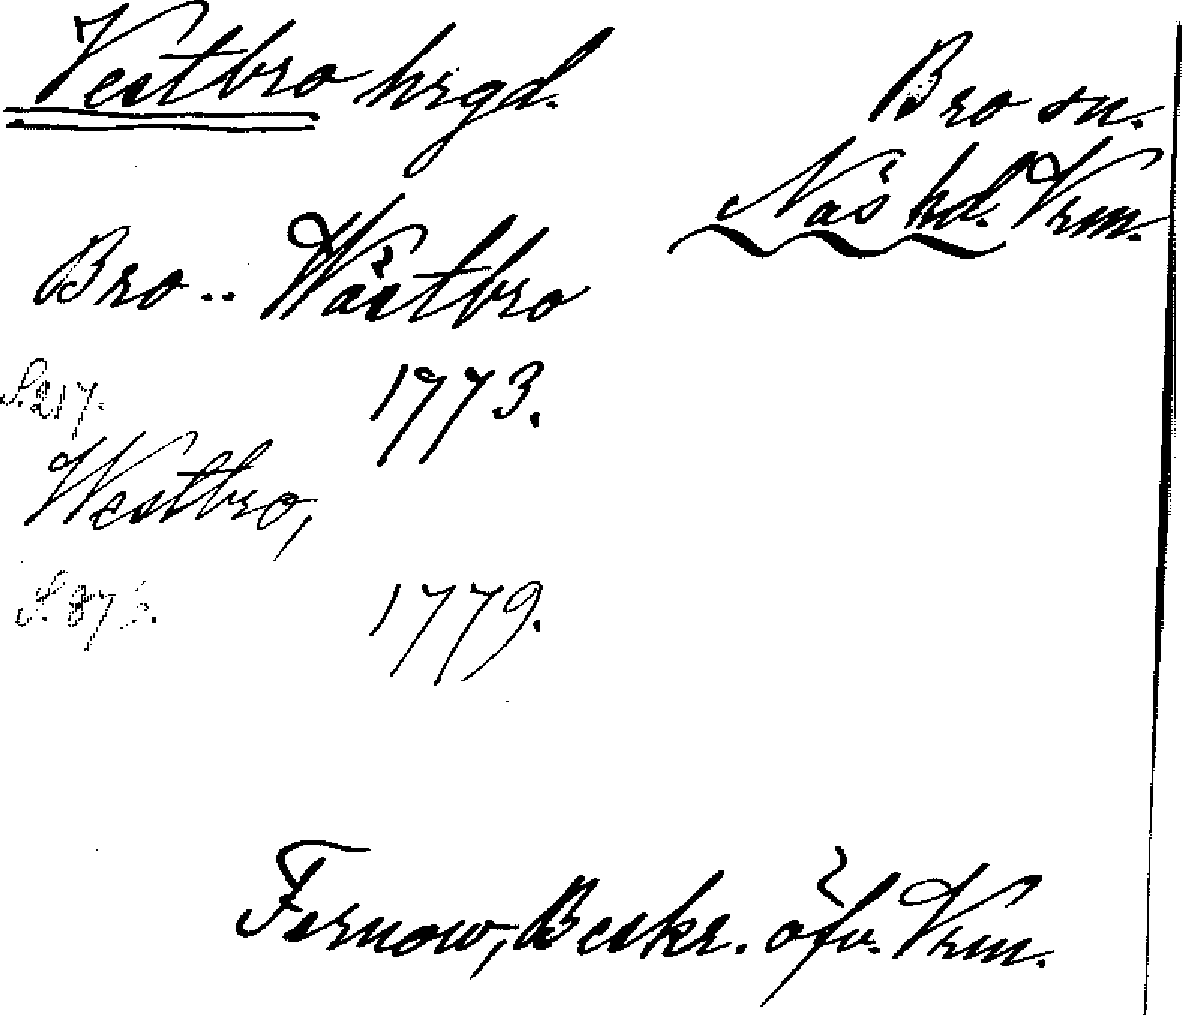 Vestbro hrgd.
Bro sn.
Näs hd. Vrm.
Bro .. Wästbro
S. 217. 1773.
Westbro,
1779.
Fernow, Beskr. öfv. Vrm.